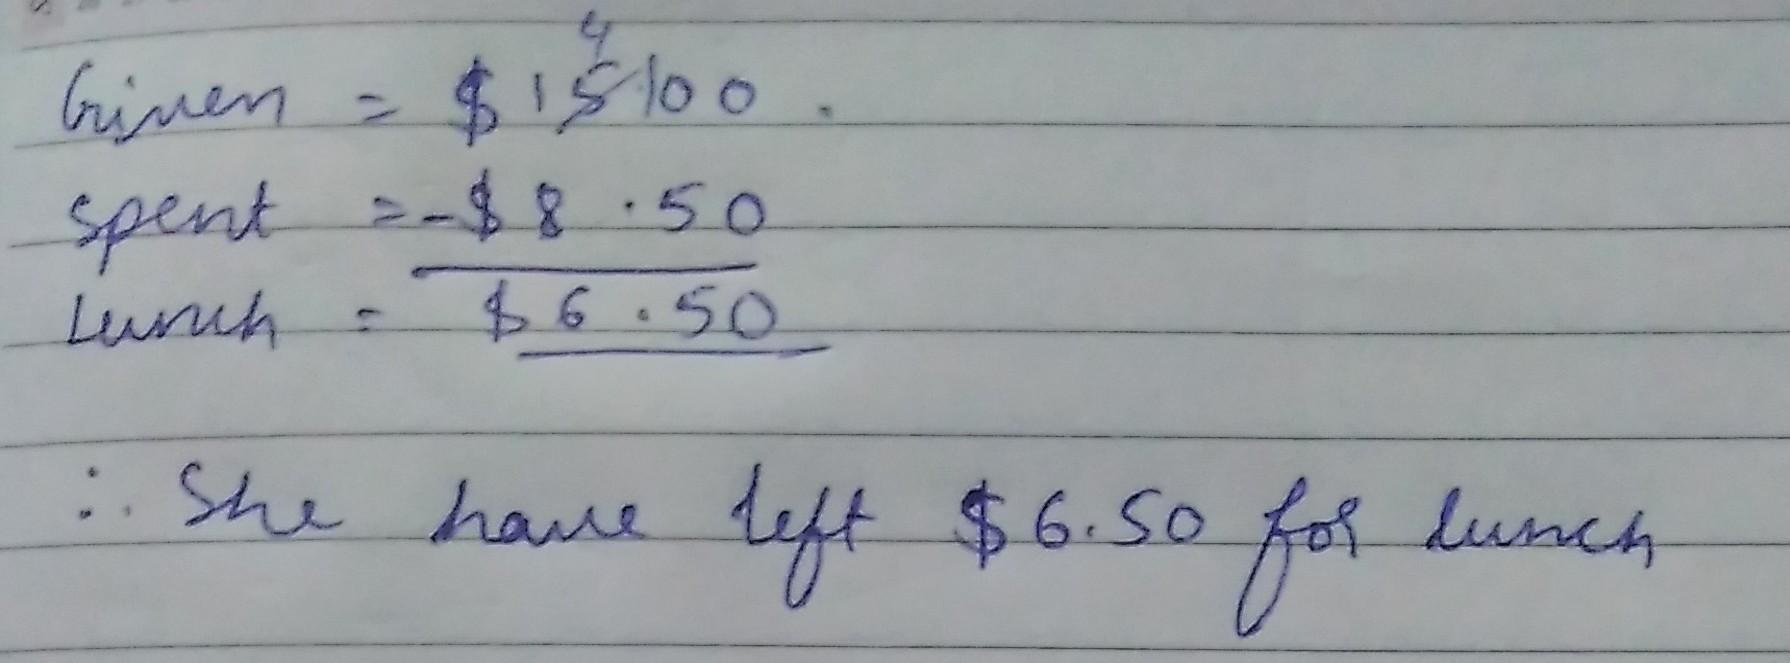 4
Given = $ 15 100 .
spent = - $ 8 . 50
Lunch = $ 6 . 50
∴ She have left $ 6.50 for lunch